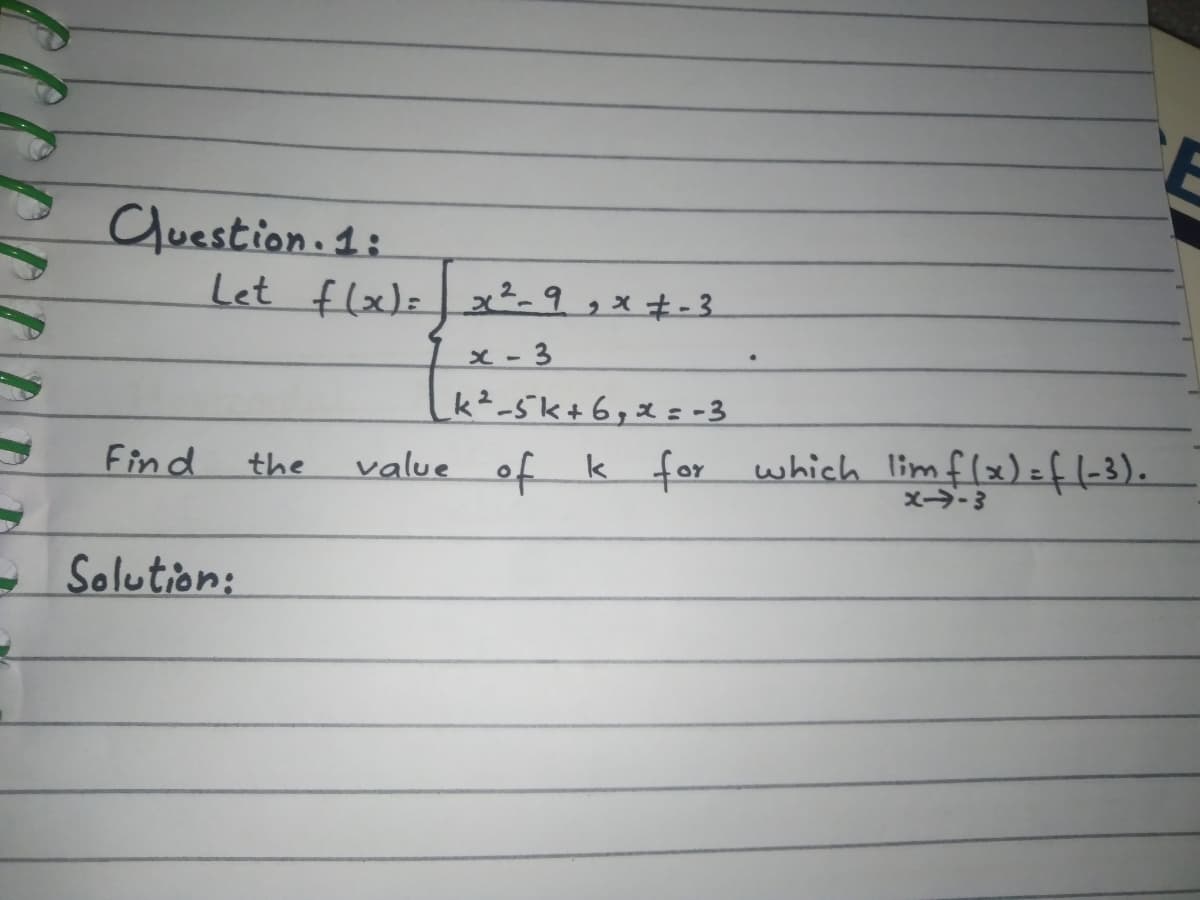 Question. 1:
Let f(x)= { x²-9 , x ≠ -3
x - 3
k²-5k+6, x = -3
Find the value of k for which lim f(x)=f(-3).
x→-3
Solution:
E